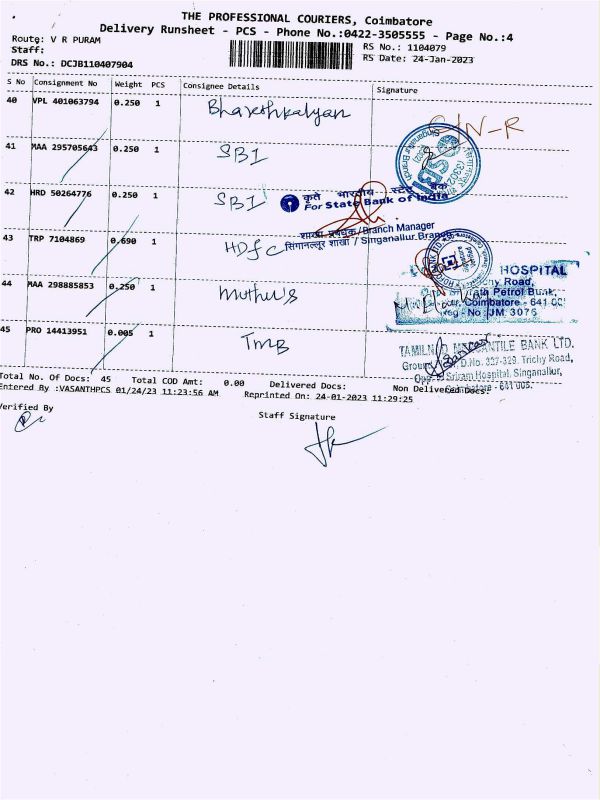 THE PROFESSIONAL COURIERS, Coimbatore
Delivery Runsheet - PCS - Phone No.:0422-3505555 - Page No.:4
Route: V R PURAM
RS No.: 1104079
Staff:
RS Date: 24-Jan-2023
DRS No.: DCJB110407904
S No Consignment No Weight PCS Consignee Details Signature
40 VPL 401063794 0.250 1 Bhareshkalyan
41 MAA 295705643 0.250 1 SBI
42 HRD 50264776 0.250 1 SBI
कृते भारतीय स्टेट बैंक
For State Bank of India
शाखा प्रबंधक/Branch Manager
सिंगानल्लूर शाखा / Singanallur Branch
43 TRP 7104869 0.690 1 HDFC
HOSPITAL
Road,
Petrol Bunk,
Coimbatore - 641 005
Reg - No : JM. 3076
44 MAA 298885853 0.250 1 muthu's
45 PRO 14413951 0.005 1 TMB
TAMILNAD MERCANTILE BANK LTD.
D.No. 327-329, Trichy Road,
Opp. Sriram Hospital, Singanallur,
Coimbatore - 641 005.
Total No. Of Docs: 45 Total COD Amt: 0.00 Delivered Docs: Non Delivered Docs:
Entered By :VASANTHPCS 01/24/23 11:23:56 AM Reprinted On: 24-01-2023 11:29:25
Verified By
Staff Signature